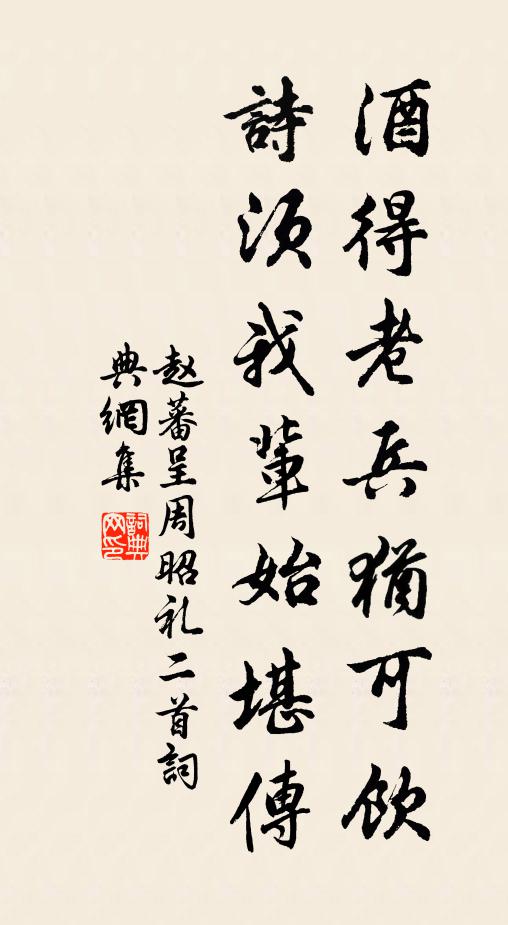 酒得老兵猶可飲
詩須我輩始堪傳
赵蕃呈周昭礼二首詞
典網集
詞典网印